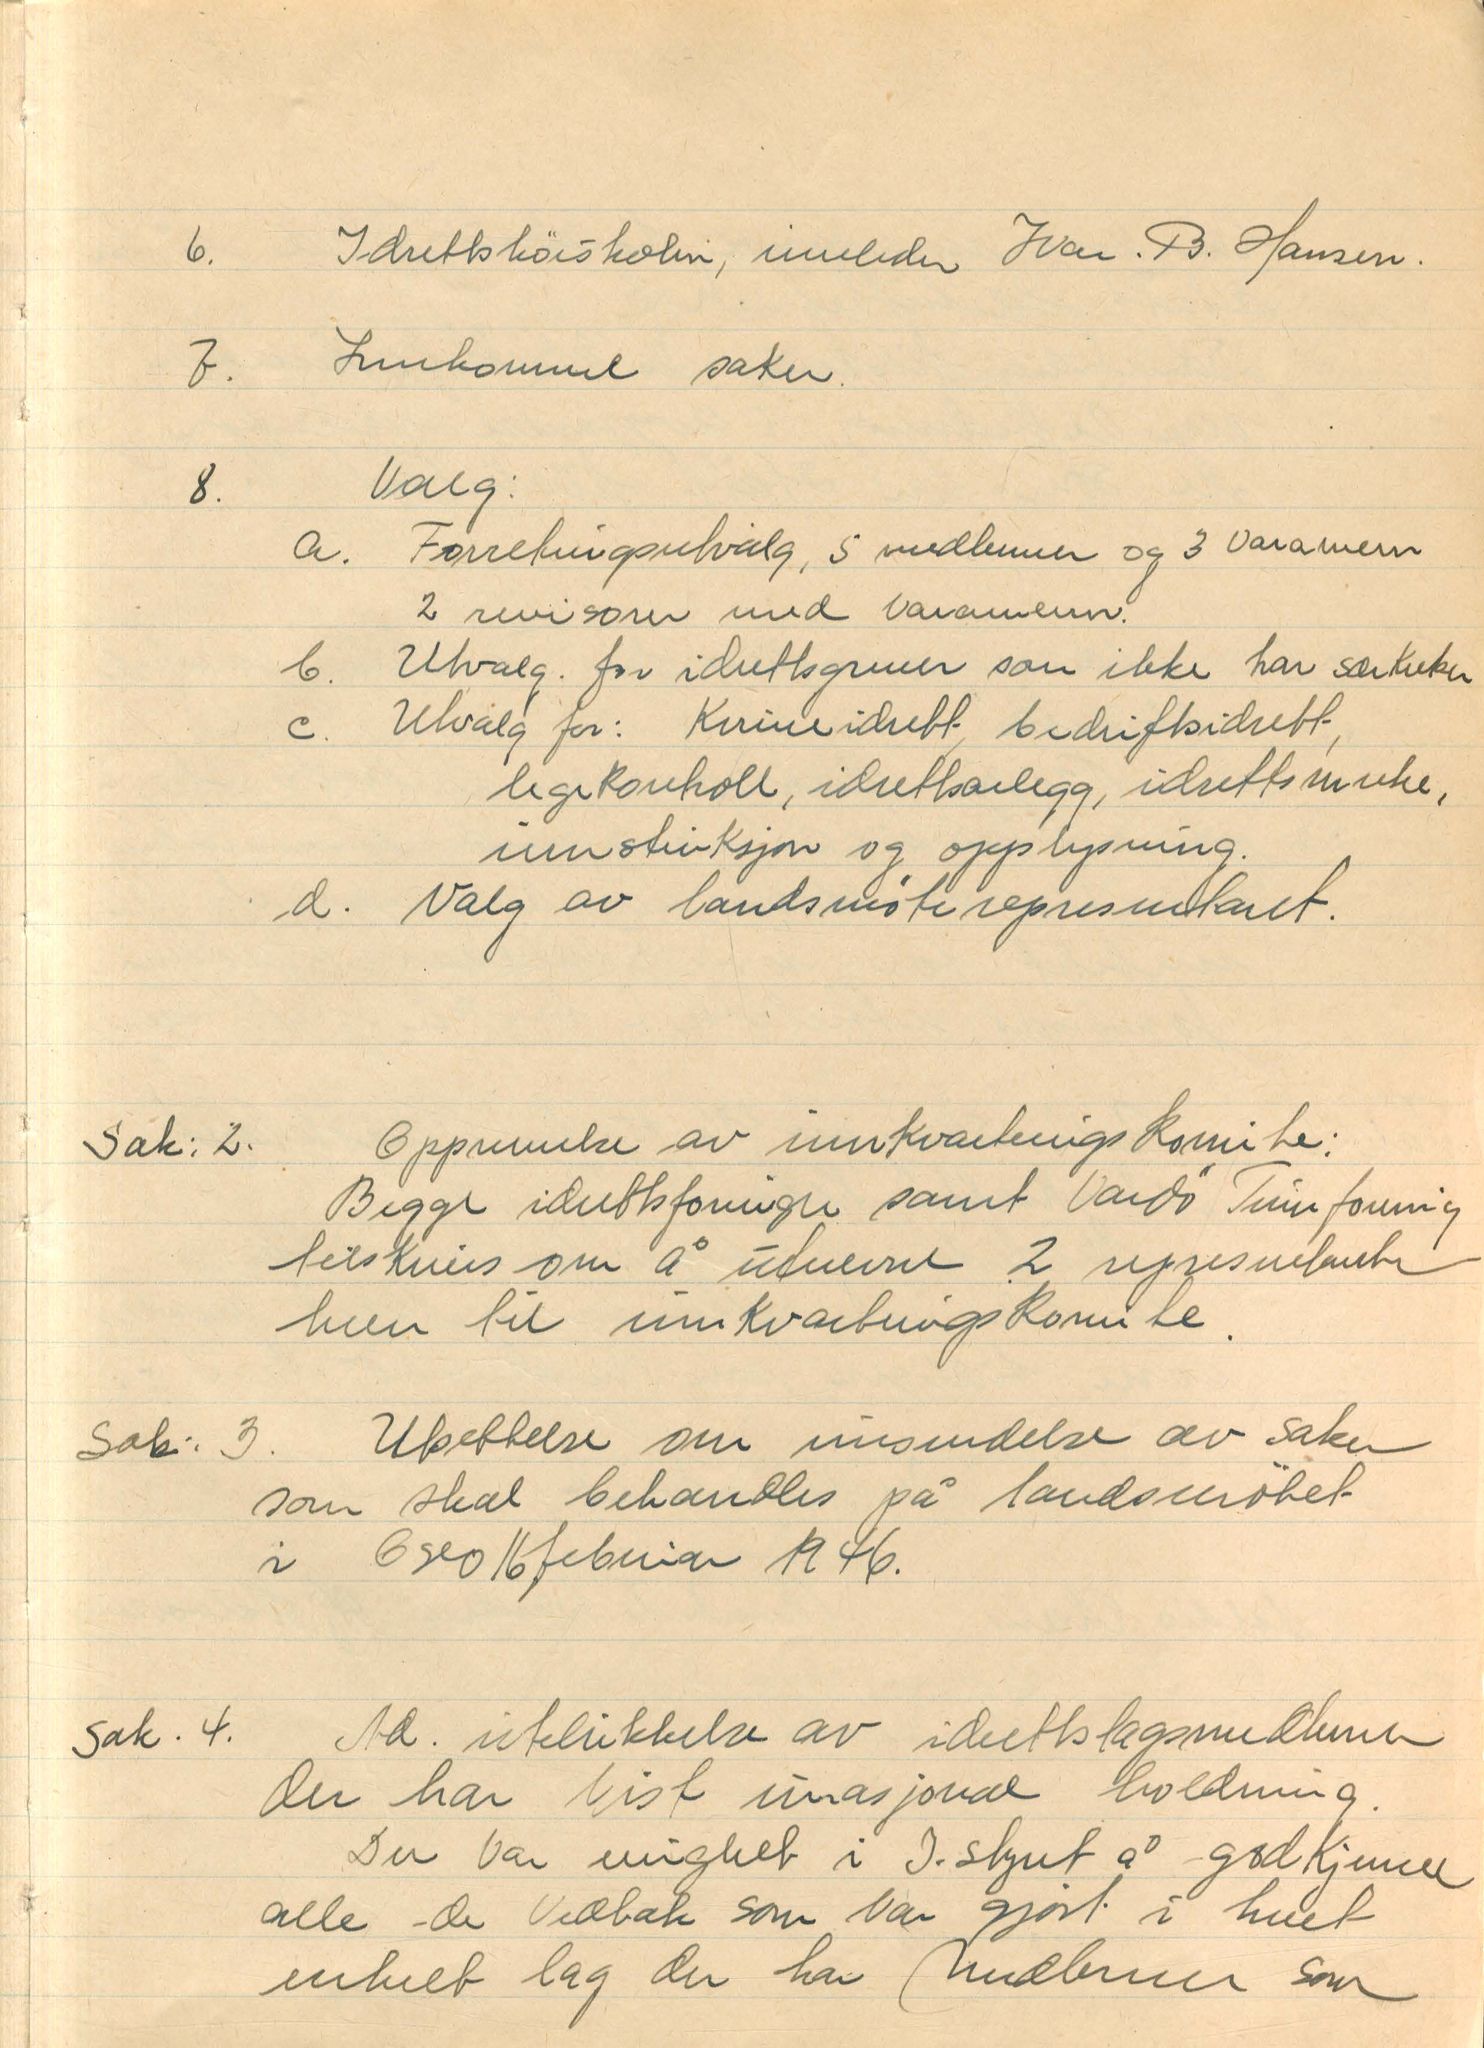 6. Idrettshöiskolen, innleder Ivar. B. Hansen.
7. Innkomne saker.
8. Valg:
a. Forretningsutvalg, 5 medlemmer og 3 varamenn
2 revisorer med varamenn.
b. Utvalg. for idrettsgrener som ikke har særkretser
c. Utvalg for: Kvineidrett, bedriftsidrett,
legekontroll, idrettsanlegg, idrettsmerke,
innstruksjon og opplysning.
d. Valg av landsmöterepresentant.
Sak: 2. Oppnevnelse av innkvarteringskomite:
Begge idrettsforeninger samt Vardö Turnforening
tilskrives om å utnevne 2 representanter
hver til innkvarteringskomite.
Sak: 3. Utsettelse om innsendelse av saker
som skal behandles på landsmötet
i Oslo 16 februar 1946.
Sak. 4. Ad. utelukkelse av idrettslagsmedlemmer
der har vist unasjonal holdning.
Der var enighet i I.styret å godkjenne
alle de vedtak som var gjort i hvert
enkelt lag der har medlemmer som